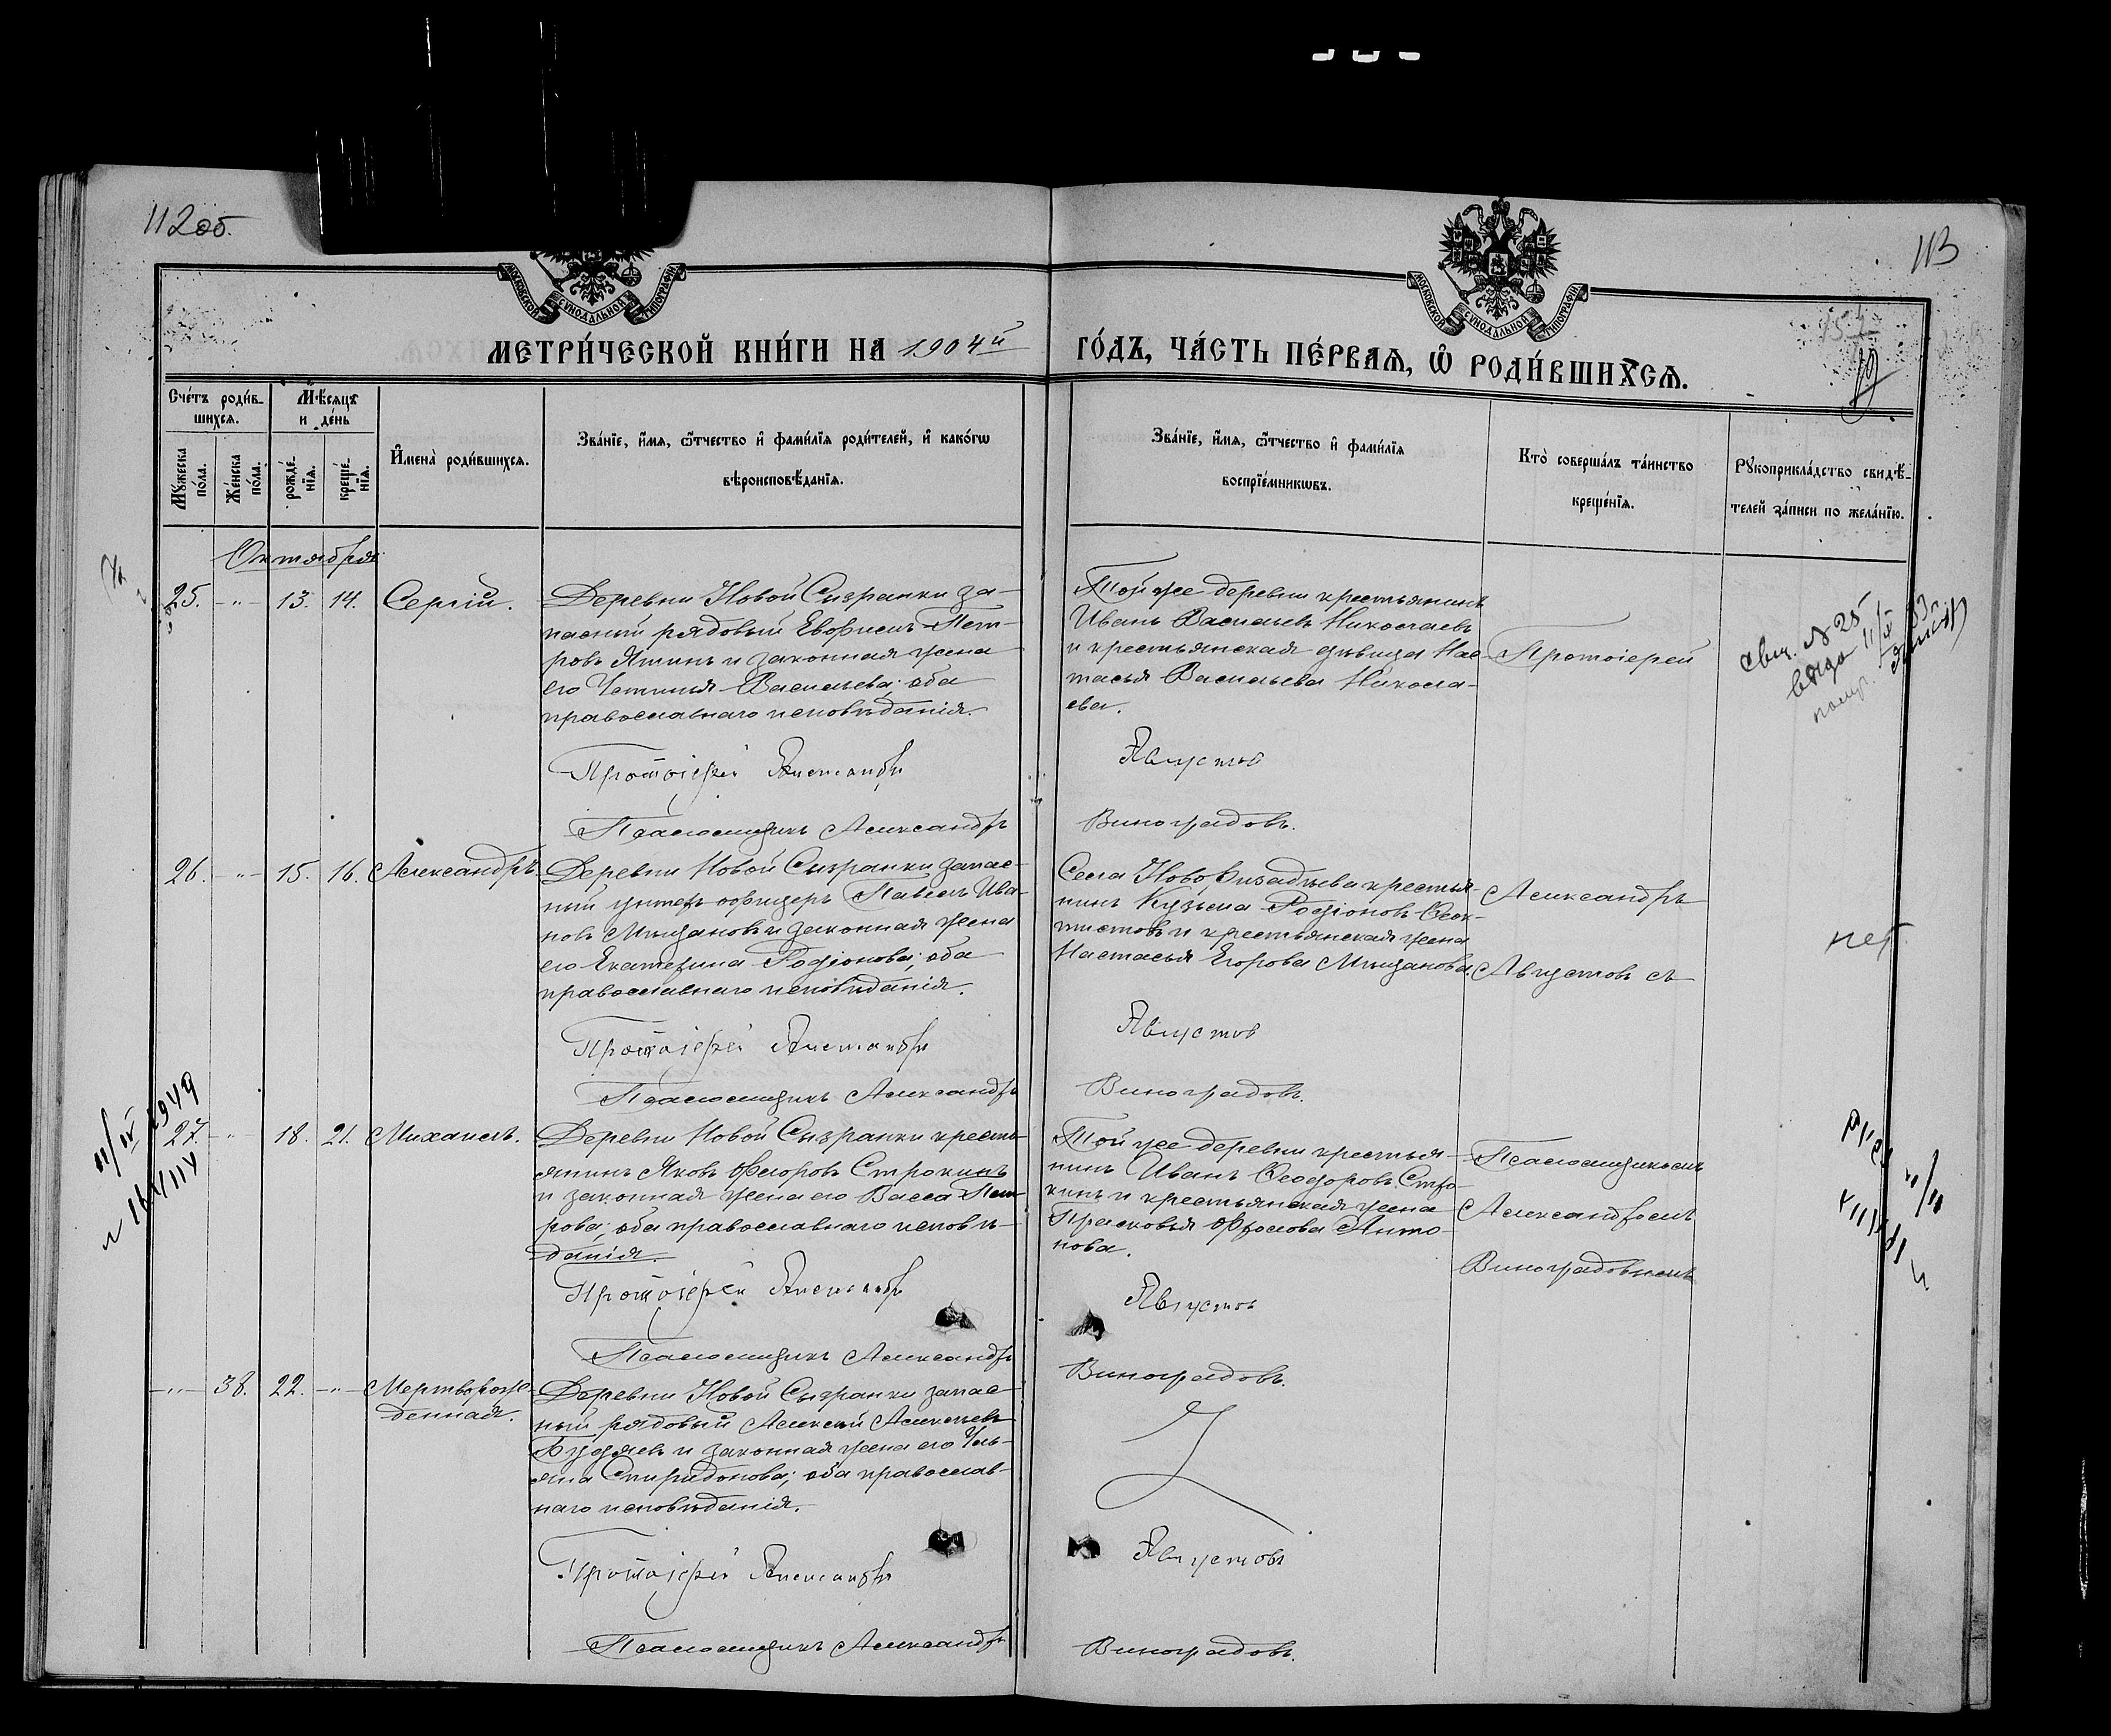 112об.
113
МОСКОВСКОЙ СѴНОДАЛЬНОЙ ТИПОГРАФІИ
МОСКОВСКОЙ СѴНОДАЛЬНОЙ ТИПОГРАФІИ
МЕТРИ́ЧЕСКОЙ КНИ́ГИ НА 1904й
ГО́ДЪ, ЧА́СТЬ ПЕ́РВАѦ, Ѡ҆ РОДИ́ВШИХСѦ.
Сче́тъ роди́в-
шихсѧ.
Мꙋ́жеска по́ла.
Же́нска по́ла.
Мѣ́сѧцъ
и де́нь
рожде́-нїѧ.
креще́-нїѧ.
И҆мена̀ роди́вшихсѧ.
Зва́нїе, и҆́мѧ, ѻ҆́тчество и҆ фами́лїѧ роди́телей, и҆ како́гѡ
вѣроисповѣ́данїѧ.
Зва́нїе, и҆́мѧ, ѻ҆́тчество и҆ фами́лїѧ
воспрїе́мникѡвъ.
Кто̀ соверша́лъ та́инство
креще́нїѧ.
Рꙋкоприкла́дство свидѣ́-
телей за́писи по жела́нїю.
Октября
25. -"- 13. 14. Сергій.
Деревни Новой Сызранки за-
пасный рядовый Евфимъ Пет-
ровъ Яшинъ и законная жена
его Васильева; оба
православнаго исповѣданія.
Протоіерей Александръ
Псаломщикъ Александръ
Той же деревни крестьянинъ
Иванъ Васильевъ Николаевъ
и крестьянская дѣвица Нас-
тасья Васильева Никола-
ева.
Августов
Виноградовъ.
Протоіерей
свид. № 25
26. -"- 15. 16. Александръ
Деревни Новой Сызранки запас-
ный унтеръ офицеръ Павелъ Ива-
новъ Мызановъ и законная жена
его Екатерина Родіонова; оба
православнаго исповѣданія.
Протоіерей Александръ
Псаломщикъ Александръ
Села крестья-
нинъ Кузьма Родіоновъ Ѳеок-
тистовъ и крестьянская жена
Настасья Егорова Мызанова.
Августов
Виноградовъ.
Александръ
Августовъ съ
нет
11/IV 1949
27. -"- 18. 21. Михаилъ.
Деревни Новой Сызранки кресть-
янинъ Яковъ Ѳедоровъ Строкинъ
и законная жена его Васса Пет-
рова; оба православнаго исповѣ-
данія.
Протоіерей Александръ
Псаломщикъ Александръ
Той же деревни крестья-
нинъ Иванъ Ѳеодоровъ Стро-
кинъ и крестьянская жена
Прасковья Фролова Анто-
нова.
Августов
Виноградовъ.
Псаломщикомъ
Александромъ
Виноградовымъ
-"- 38. 22. -"- Мертворож-
денная.
Деревни Новой Сызранки запас-
ный рядовый Алексѣй Алексѣевъ
и законная жена его Уль-
яна Спиридонова; оба православ-
наго исповѣданія.
Протоіерей Александръ
Псаломщикъ Александръ
Августовъ
Виноградовъ.